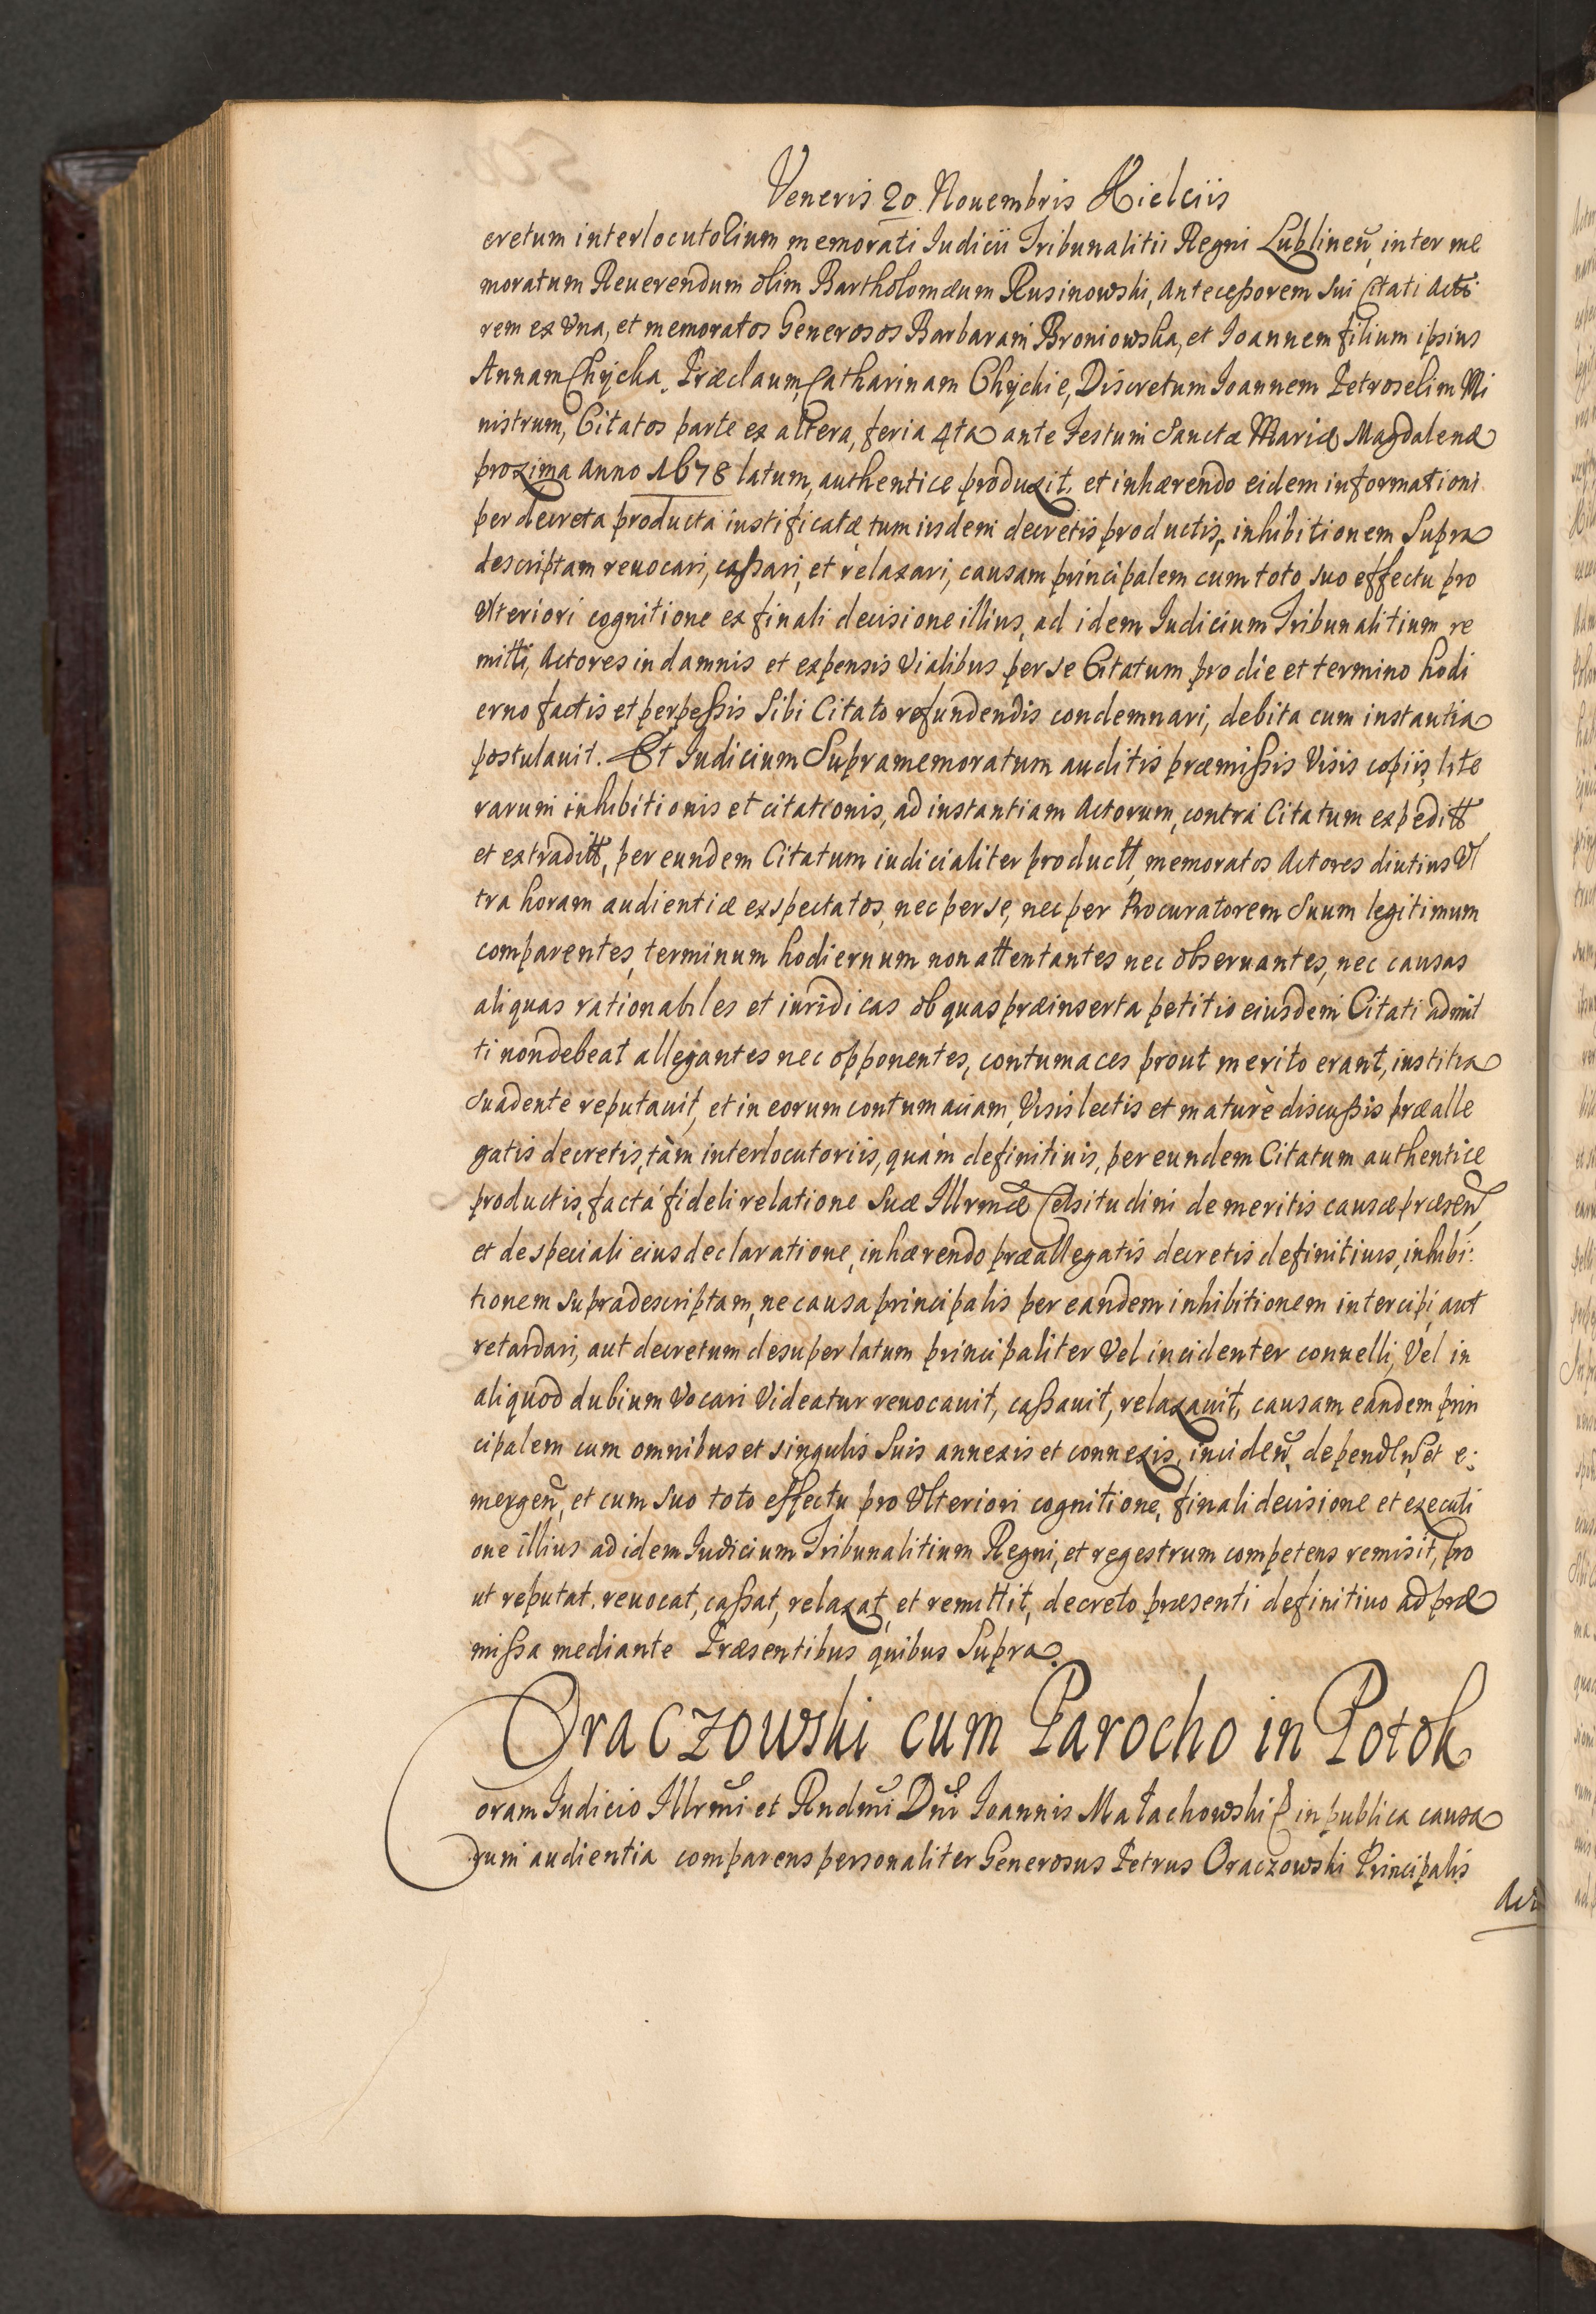 Veneris 20. Nouembris Kielciis
cretum interlocutorium memorati Iudicii Tribunalitii Regni Lublineñ, inter me
moratum Reuerendum olim Bartholomæum Rusinowski, Antecessorem sui Citati Acto
rem ex Vna, et memoratos Generosos Barbaram Broniowska, et Ioannem filium ipsius
Annam Chycka, Præclaum, Catharinam Chyckie, Discretum Ioannem Petroselim Mi
nistrum, Citatos parte ex altera, feria 4ta ante Festum Sanctæ Mariæ Magdalenæ
proxima Anno 1678 latum, authentice produxit, et inhærendo eidem informationi
per decreta producta iustificatæ tum iisdem decretis productis, inhibitionem Supra
descriptam reuocari, cassari, et relaxari, causam principalem cum toto suo effectu pro
Vlteriori cognitione ex finali decisione illius, ad idem Iudicium Tribunalitium re
mitti, Actores in damnis et expensis Vialibus per se Citatum pro die et termino hodi
erno factis et perpessis Sibi Citato refundendis condemnari, debita cum instantia
postulauit. Et Iudicium Supramemoratum auditis præmissis Visis copiis, lite
rarum inhibitionis et citationis, ad instantiam Actorum, contra Citatum expeditt
et extraditt, per eundem Citatum iudicialiter productt, memoratos Actores diutius Vl
tra horam audientiæ exspectatos, nec per se, nec per Procuratorem Suum legitimum
comparentes, terminum hodiernum non attentantes nec obseruantes, nec causas
aliquas rationabiles et iuridicas ob quas præinserta petitio eiusdem Citati admit
ti non debeat allegantes nec opponentes, contumaces prout merito erant, iustitia
Suadente reputauit, et in eorum contumaciam, Visis lectis et maturè discussis præalle
gatis decretis, tàm interlocutoriis, quàm definitiuis, per eundem Citatum authentice
productis, factà fideli relatione Suæ Illrmæ Celsitudini de meritis causæ præseñ,
et de speciali eius declaratione, inhærendo præallegatis decretis definitiuis, inhibi:
tionem supradescriptam, ne causa principalis per eandem inhibitionem intercipi, aut
retardari, aut decretum desuper latum principaliter Vel incidenter conuelli, Vel in
aliquod dubium Vocari Videatur reuocauit, cassauit, relaxauit, causam eandem prin
cipalem cum omnibus et singulis Suis annexis et connexis, incideñ, dependeñ, et e:
mergeñ, et cum Suo toto effectu pro Vlteriori cognitione, finali decisione et executi
one illius ad idem Iudicium Tribunalitium Regni, et regestrum competens remisit, pro
ut reputat, reuocat, cassat, relaxat, et remittit, decreto præsenti definitiuo ad præ
missa mediante Præsentibus quibus Supra.
Oraczowski cum Parocho in Potok
Coram Iudicio Illrmi et Rndmi Dni Ioannis Małachowski in publica causa
rum audientia comparens personaliter Generosus Petrus Oraczowski Principalis